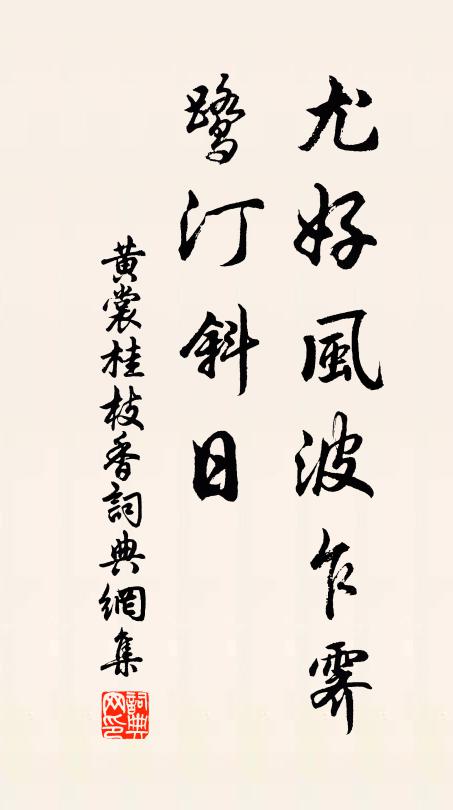 尤好風波乍霽
鷺汀斜日
黃裳桂枝香詞典網集
詞典网印